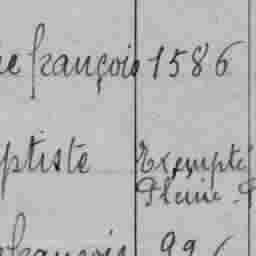 e françois 1586
ptiste Exempté
Pleine
françois 996